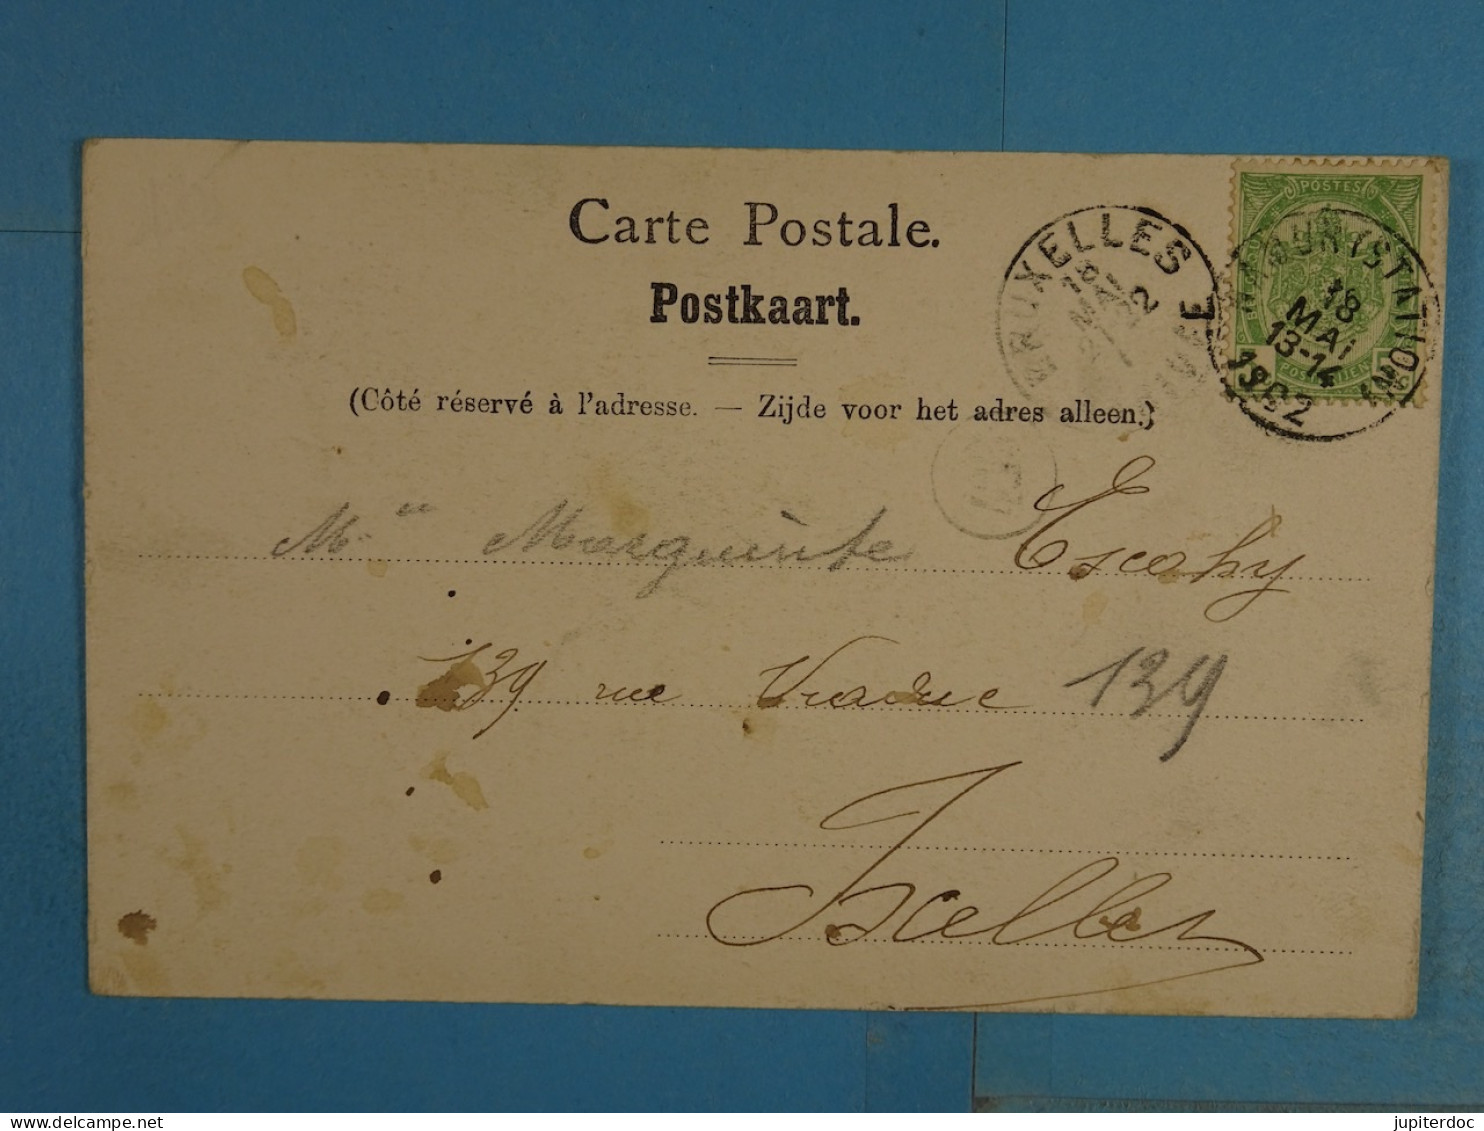 Carte Postale.
Postkaart.
(Côté réservé à l'adresse. — Zijde voor het adres alleen.)
POSTES
BRUXELLES
18
MAI
2
NAMUR (STATION)
18
MAI
13-14
1902
Mlle Marguerite Escahy
139 rue Viaduc 139
Ixelles
www.delcampe.net
jupiterdoc